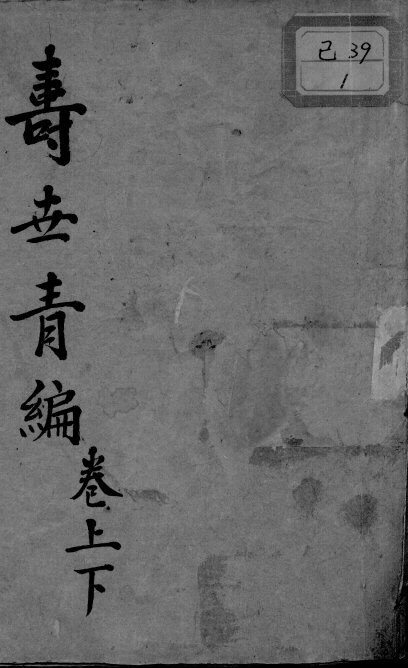 壽世青編卷上下
己 39
1